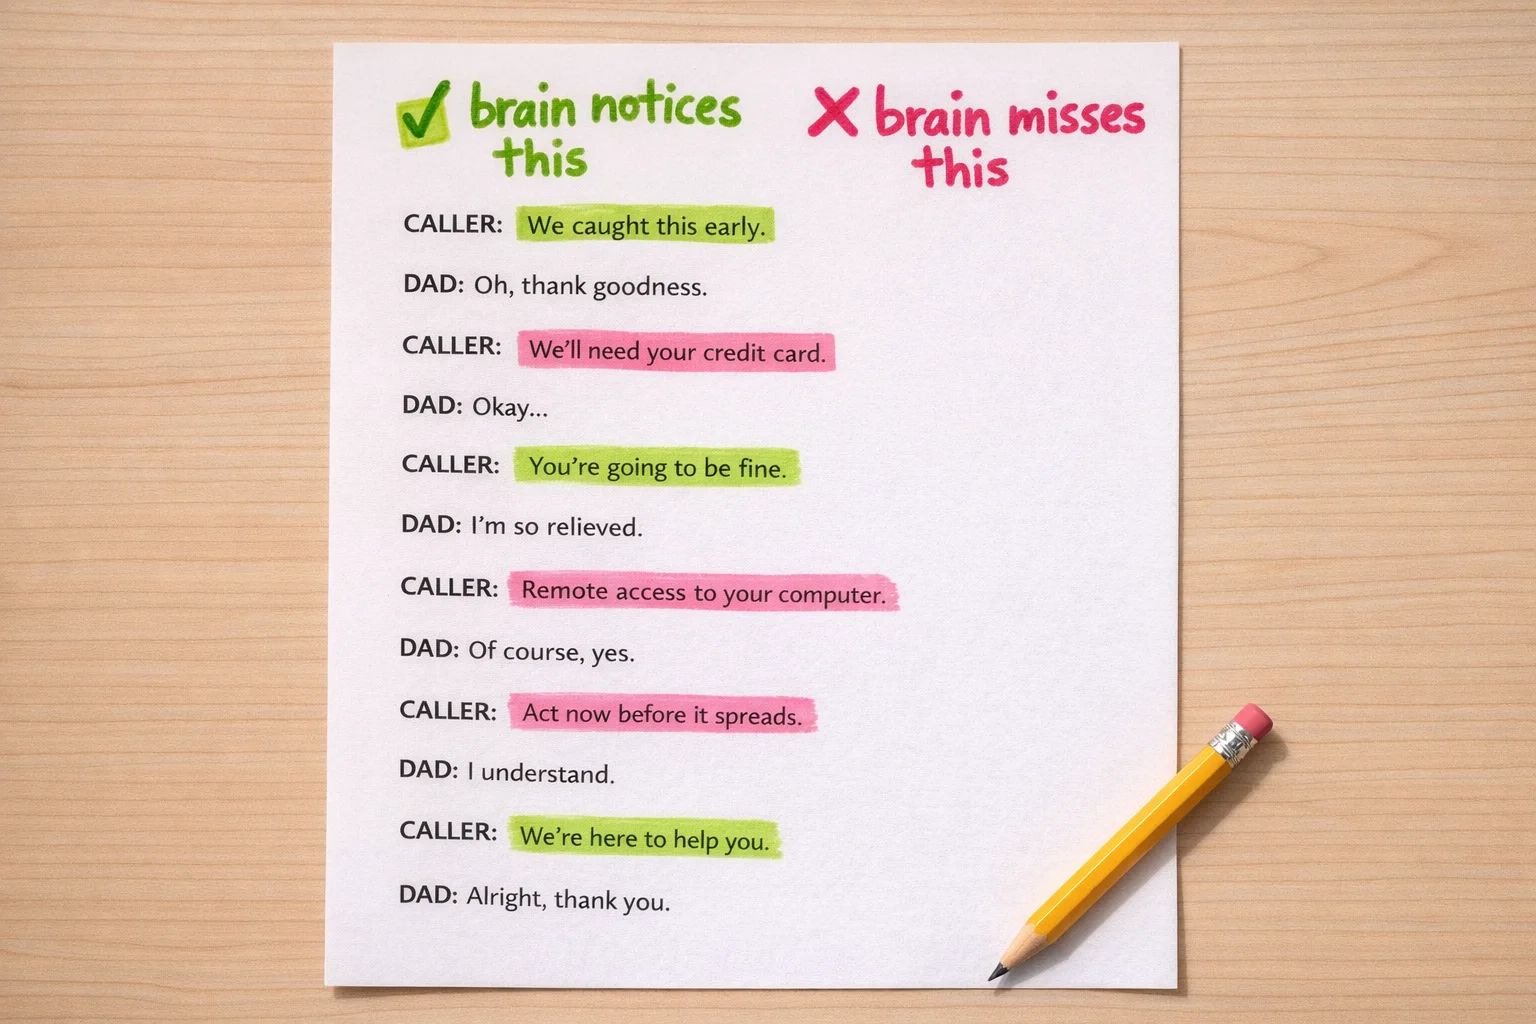 brain notices
this
brain misses
this
CALLER: We caught this early.
DAD: Oh, thank goodness.
CALLER: We'll need your credit card.
DAD: Okay...
CALLER: You're going to be fine.
DAD: I'm so relieved.
CALLER: Remote access to your computer.
DAD: Of course, yes.
CALLER: Act now before it spreads.
DAD: I understand.
CALLER: We're here to help you.
DAD: Alright, thank you.